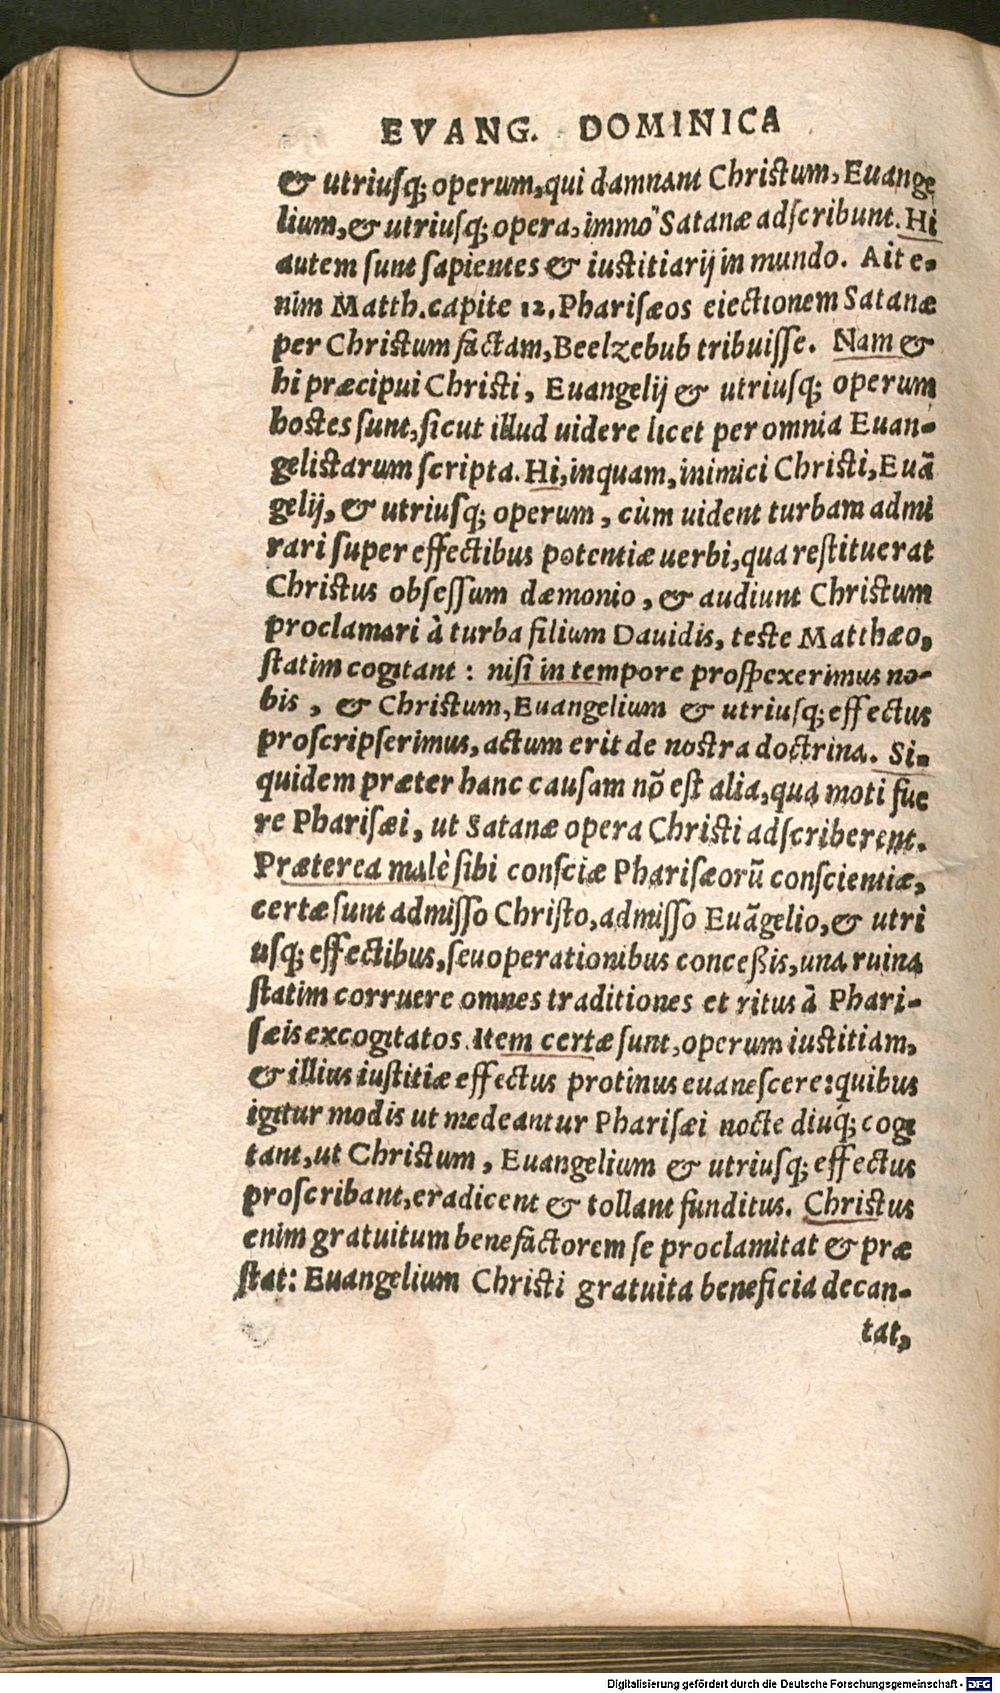 EVANG. DOMINICA
& utriusq; operum, qui damnant Christum, Euange
lium, & utriusq; opera, immo Satanæ adscribunt. Hi
autem sunt sapientes & iustitiarij in mundo. Ait e-
nim Matth. capite 12. Pharisæos eiectionem Satanæ
per Christum factam, Beelzebub tribuisse. Nam &
hi præcipui Christi, Euangelij & utriusq; operum
hostes sunt, sicut illud uidere licet per omnia Euan-
gelistarum scripta. Hi, inquam, inimici Christi, Euã
gelij, & utriusq; operum, cùm uident turbam admi
rari super effectibus potentiæ uerbi, qua restituerat
Christus obsessum dæmonio, & audiunt Christum
proclamari à turba filium Dauidis, teste Matthæo,
statim cogitant: nisi in tempore prospexerimus no-
bis, & Christum, Euangelium & utriusq; effectus
proscripserimus, actum erit de nostra doctrina. Si-
quidem præter hanc causam nõ est alia, qua moti fue
re Pharisæi, ut Satanæ opera Christi adscriberent.
Præterea malè sibi consciæ Pharisæorũ conscientiæ,
certæ sunt admisso Christo, admisso Euãgelio, & utri
usq; effectibus, seu operationibus conceßis, una ruina
statim corruere omnes traditiones et ritus à Phari-
sæis excogitatos. Item certæ sunt, operum iustitiam,
& illius iustitiæ effectus protinus euanescere: quibus
igitur modis ut medeantur Pharisæi nocte diuq́; cogi
tant, ut Christum, Euangelium & utriusq; effectus
proscribant, eradicent & tollant funditus. Christus
enim gratuitum benefactorem se proclamitat & præ
stat: Euangelium Christi gratuita beneficia decan-
tat,
Digitalisierung gefördert durch die Deutsche Forschungsgemeinschaft - DFG